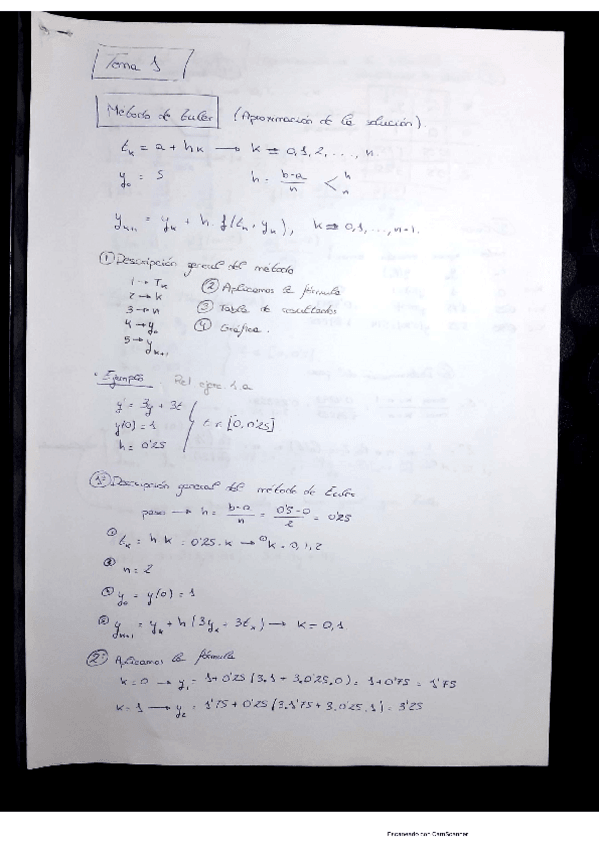 Tema 1
Método de Euler (Aproximación de la solución).
t_k = a + hk → k = 0,1,2,...,n.
y_0 = S    h = (b-a)/n < h n
y_{k+1} = y_k + h · f(t_k, y_k), k = 0,1,...,n-1.
① Descripción general del método
1 → T_k    ② Aplicamos la fórmula
2 → k
3 → n    ③ Tabla de resultados
4 → y_0    ④ Gráfica.
5 → y_{k+1}
· Ejemplo. Del ejerc. 1.a
y' = 3y + 3t
y(0) = 1    t ∈ [0, 0'25]
h = 0'25
①: Descripción general del método de Euler
paso → h = (b-a)/n = (0'5-0)/2 = 0'25
① t_k = hk = 0'25·k → k = 0,1,2
n = 2
y_0 = y(0) = 1
y_{k+1} = y_k + h(3y_k + 3t_k) → k = 0,1
②: Aplicamos la fórmula
k=0 → y_1 = 1+0'25(3·1+3·0'25·0) = 1+0'75 = 1'75
k=1 → y_2 = 1'75+0'25(3·1'75+3·0'25·1) = 3'25
Escaneado con CamScanner